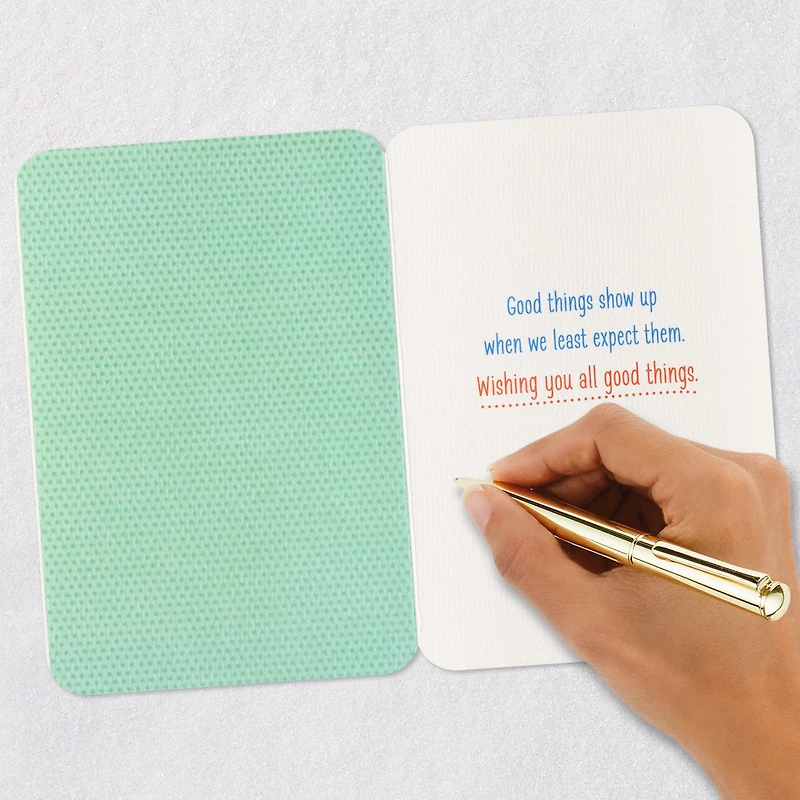 Good things show up
when we least expect them.
Wishing you all good things.